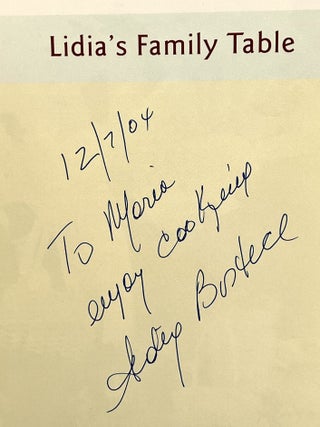 Lidia's Family Table
12/7/04
To Maria
enjoy cooking
Lidia Bastianich